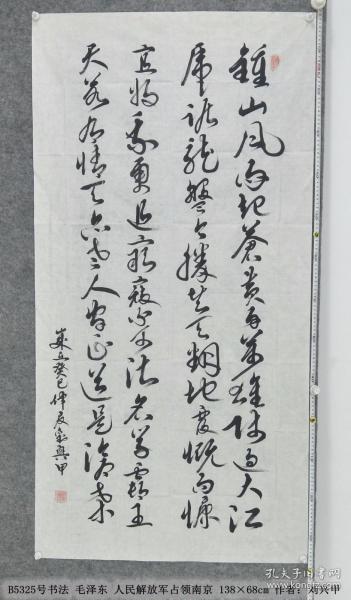 鍾山风雨起苍黄百万雄师过大江
虎踞龙盘今胜昔天翻地覆慨而慷
宜将剩勇追穷寇不可沽名学霸王
天若有情天亦老人间正道是沧桑
岁在癸巳仲夏 兴甲
孔夫子旧书网
B5325号书法 毛泽东 人民解放军占领南京 138×68cm 作者：刘兴甲